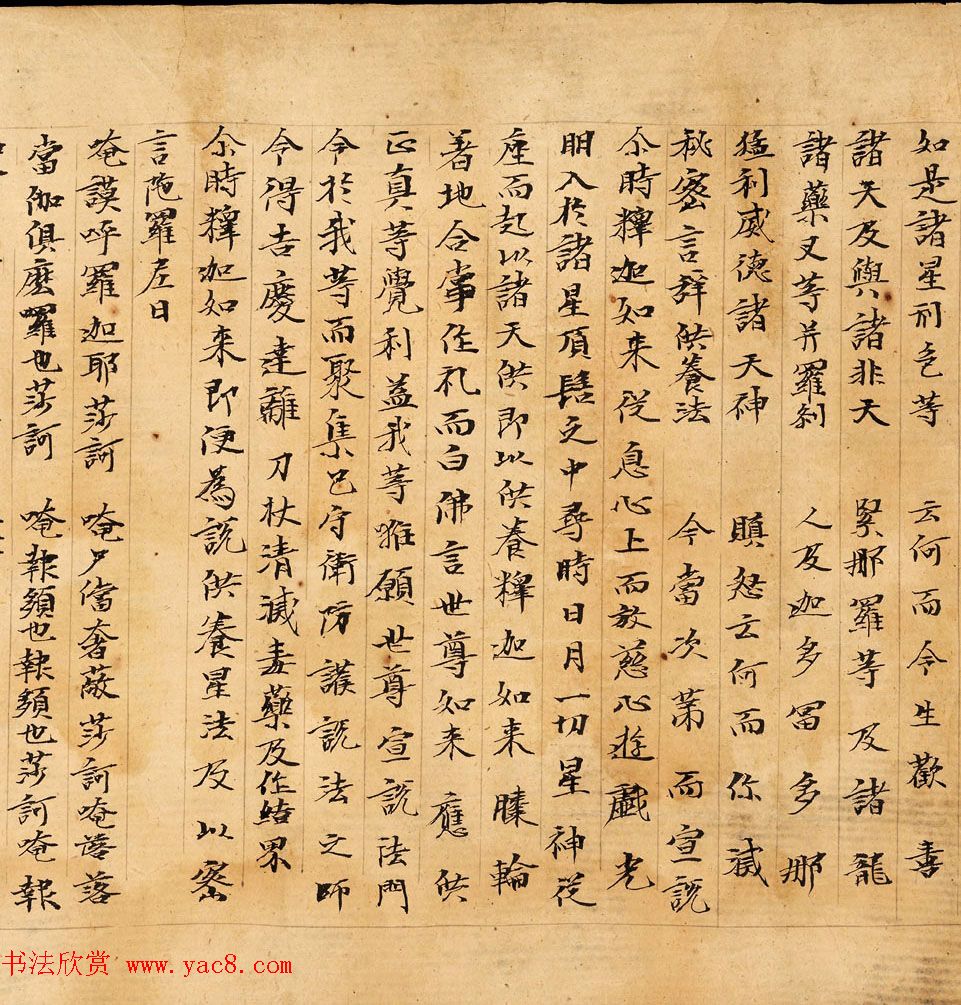 如是諸星刑色等　云何而令生歡喜
諸天及與諸非天　緊那羅等及諸龍
諸藥叉等并羅刹　人及迦多冨多那
猛利威德諸天神　瞋怒云何而你滅
秘密言辞供養法　今當次第而宣說
尒時釋迦如來從息心上而放慈心遊戲光
明入於諸星頂髻之中尋時日月一切星神從
座而起以諸天供即以供養釋迦如來膝輪
著地合掌作礼而白佛言世尊如來應供
正真等覺利益我等唯願世尊宣說法門
令於我等而聚集已守衛防護說法之師
令得吉慶達離刀杖清滅毒藥及作結界
尒時釋迦如來即便為說供養星法及以密
言陁羅尼曰
唵謨呼羅迦耶莎訶　唵尸儅奢蔽莎訶唵落
當伽俱麼囉也莎訶　唵報頦也報頦也莎訶唵報
书法欣赏 www.yac8.com